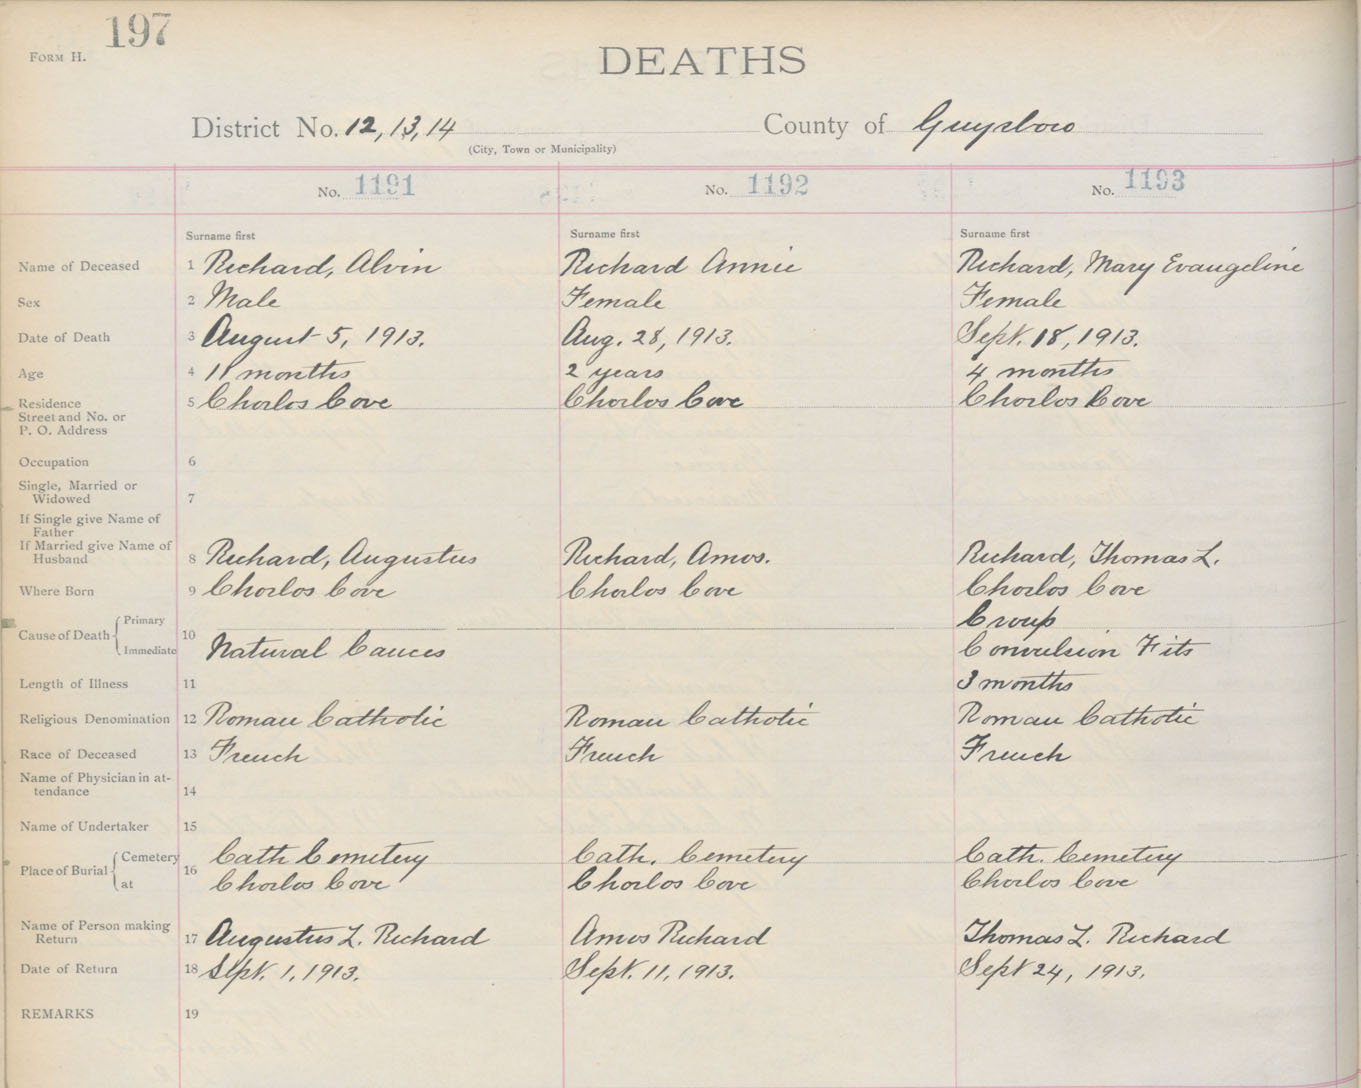 197
FORM H.
DEATHS
District No. 12, 13, 14 County of Guysboro
(City, Town or Municipality)
No. 1191 No. 1192 No. 1193
Surname first Surname first Surname first
Name of Deceased 1 Richard, Alvin Richard Annie Richard, Mary Evangeline
Sex 2 Male Female Female
Date of Death 3 August 5, 1913. Aug. 28, 1913. Sept. 18, 1913.
Age 4 11 months 2 years 4 months
Residence 5 Chorlos Cove Chorlos Cove Chorlos Cove
Street and No. or
P. O. Address
Occupation 6
Single, Married or
Widowed 7
If Single give Name of
Father
If Married give Name of
Husband 8 Richard, Augustus Richard, Amos. Richard, Thomas L.
Where Born 9 Chorlos Cove Chorlos Cove Chorlos Cove
Primary Croup
Cause of Death 10
Immediate Natural Cauces Convulsion Fits
Length of Illness 11 3 months
Religious Denomination 12 Roman Catholic Roman Catholic Roman Catholic
Race of Deceased 13 French French French
Name of Physician in at-
tendance 14
Name of Undertaker 15
Cemetery Cath Cemetery Cath. Cemetery Cath. Cemetery
Place of Burial 16
at Chorlos Cove Chorlos Cove Chorlos Cove
Name of Person making
Return 17 Augustus L. Richard Amos Richard Thomas L. Richard
Date of Return 18 Sept. 1, 1913. Sept. 11, 1913. Sept 24, 1913.
REMARKS 19